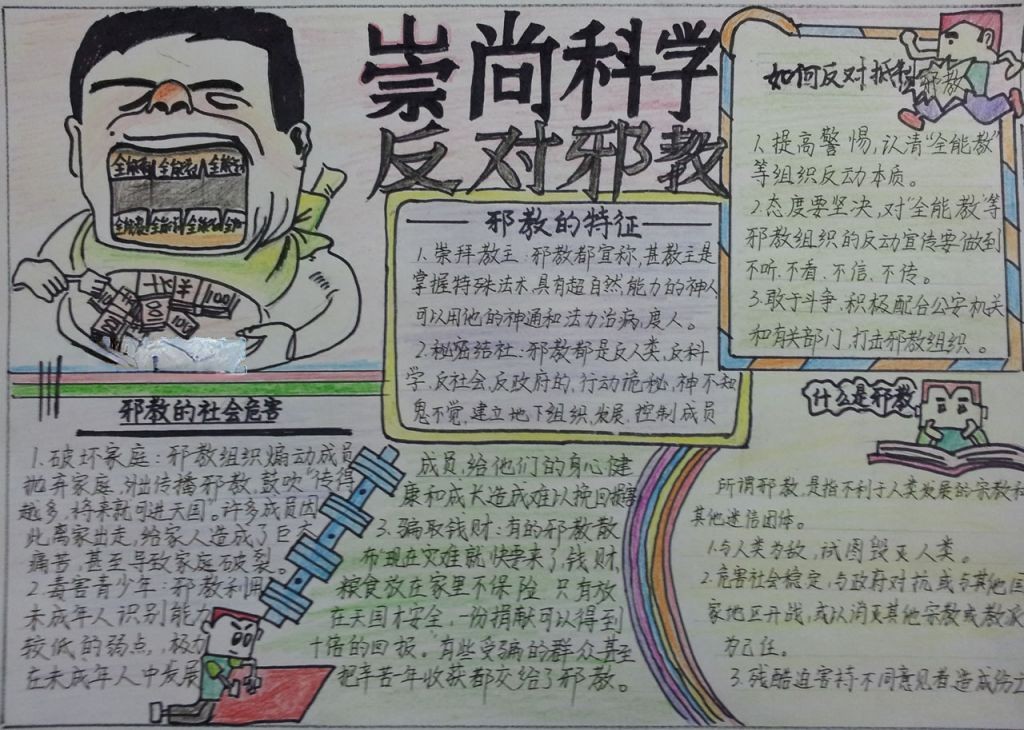 崇尚科学
反对邪教
全能教 全能教 全能
全能教 全能 全能
¥
100
100
邪教的特征
1.崇拜教主:邪教都宣称,其教主是
掌握特殊法术,具有超自然能力的神人
可以用他的神通和法力治病,度人。
2.秘密结社:邪教都是反人类,反科
学,反社会,反政府的,行动诡秘,神不知
鬼不觉,建立地下组织,发展,控制成员
如何反对抵制邪教
1.提高警惕,认清“全能教”
等组织反动本质。
2.态度要坚决,对“全能教”等
邪教组织的反动宣传要做到
不听、不看、不信、不传。
3.敢于斗争,积极配合公安机关
和有关部门,打击邪教组织。
邪教的社会危害
1.破坏家庭:邪教组织煽动成员
抛弃家庭,外出传播邪教,鼓吹“传得
越多,将来就可进天国。许多成员因
此离家出走,给家人造成了巨大
痛苦,甚至导致家庭破裂。
2.毒害青少年:邪教利用
未成年人识别能力
较低的弱点,极力
在未成年人中发展
成员,给他们的身心健
康和成长造成难以挽回损害
3.骗取钱财:有的邪教散
布“现在灾难就快要来了,钱财,
粮食放在家里不保险,只有放
在天国才安全,一份捐献可以得到
十倍的回报。”有些受骗的群众甚至
把辛苦一年收获都交给了邪教。
什么是邪教
所谓邪教,是指不利于人类发展的宗教和
其他迷信团体。
1.与人类为敌,试图毁灭人类。
2.危害社会稳定,与政府对抗或与其他国
家地区开战,或以消灭其他宗教或教派
为己任。
3.残酷迫害持不同意见者,造成伤亡